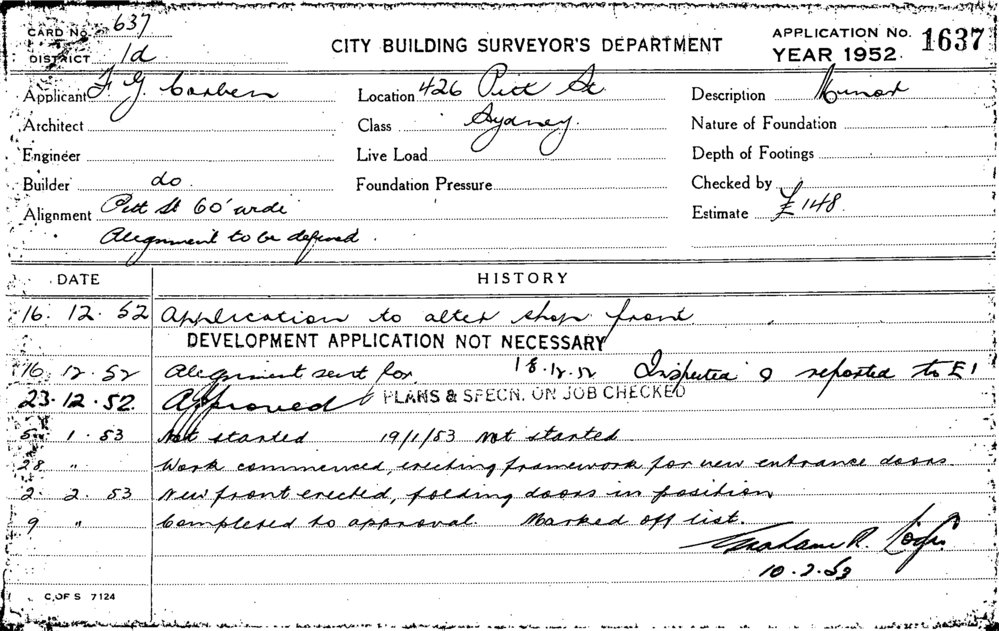 CARD No. 637
DISTRICT 1d
CITY BUILDING SURVEYOR'S DEPARTMENT
APPLICATION No. 1637
YEAR 1952.
Applicant F. G. Corben
Location 426 Pitt St
Description Minor
Architect
Class Sydney.
Nature of Foundation
Engineer
Live Load
Depth of Footings
Builder do
Foundation Pressure
Checked by
Alignment Pitt St 60' wide
Estimate £148.
Alignment to be defined.
DATE HISTORY
16. 12. 52 Application to alter shop front
DEVELOPMENT APPLICATION NOT NECESSARY
16. 12. 52 Alignment sent for 18.12.52 Inspected & reported to E1
23. 12. 52. Approved PLANS & SPECN. ON JOB CHECKED
5. 1. 53 Not started 19/1/53 Not started
28 " Work commenced, erecting framework for new entrance doors.
2. 2. 53 New front erected, folding doors in position
9 " Completed to approval. Marked off list.
Grahame R.
10.2.53
C. OF S 7124